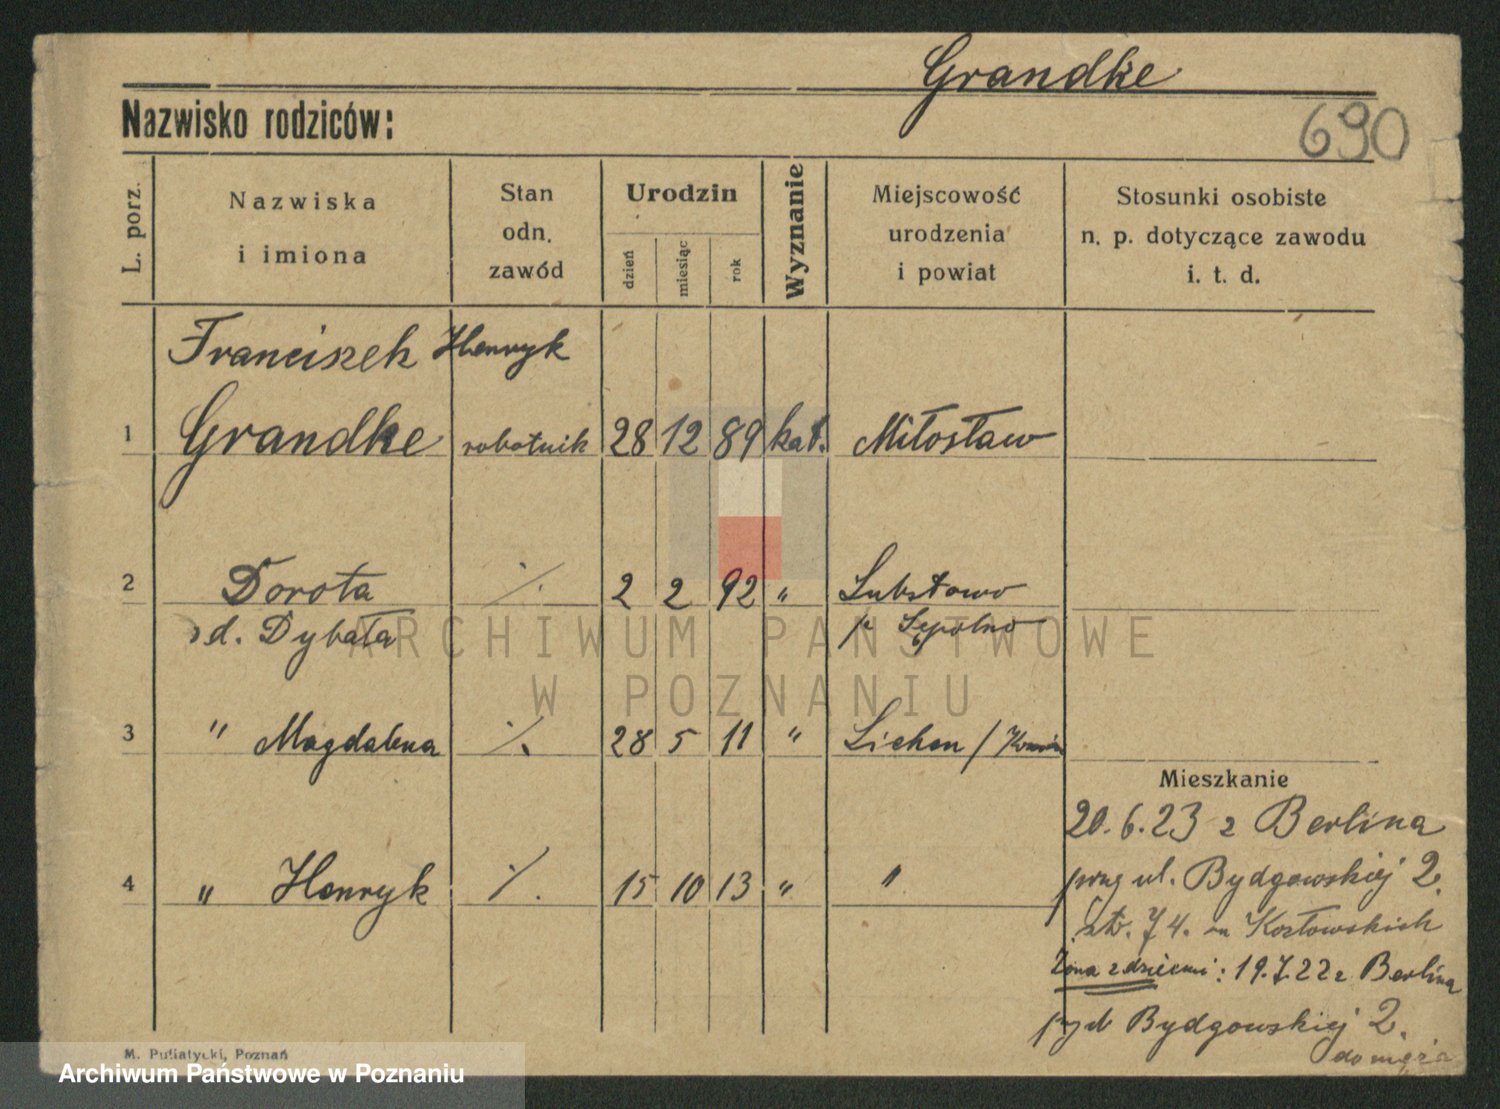 Grandke
Nazwisko rodziców:
690
L. porz.
Nazwiska
i imiona
Stan
odn.
zawód
Urodzin
dzień
miesiąc
rok
Wyznanie
Miejscowość
urodzenia
i powiat
Stosunki osobiste
n. p. dotyczące zawodu
i. t. d.
Franciszek Henryk
1 Grandke robotnik 28 12 89 kat. Miłosław
2 Dorota % 2 2 92 " Lubstowo
d. Dybała p Sępolno
ARCHIWUM PAŃSTWOWE
W POZNANIU
3 " Magdalena % 28 5 11 " Lichen /
Mieszkanie
20.6.23 z Berlina
4 " Henryk % 15 10 13 " "
ul. Bydgowskiej 2.
74. Kozłowskich
Żona z dziećmi: 19.7.22 z Berlina
Bydgowskiej 2.
do męża
M. Putiatycki, Poznań
Archiwum Państwowe w Poznaniu